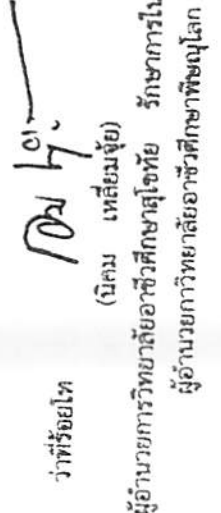 ว่าที่ร้อยโท
(นิคม เหลี่ยมจุ้ย)
ผู้อำนวยการวิทยาลัยอาชีวศึกษาสุโขทัย รักษาการใน
ผู้อำนวยการวิทยาลัยอาชีวศึกษาพิษณุโลก